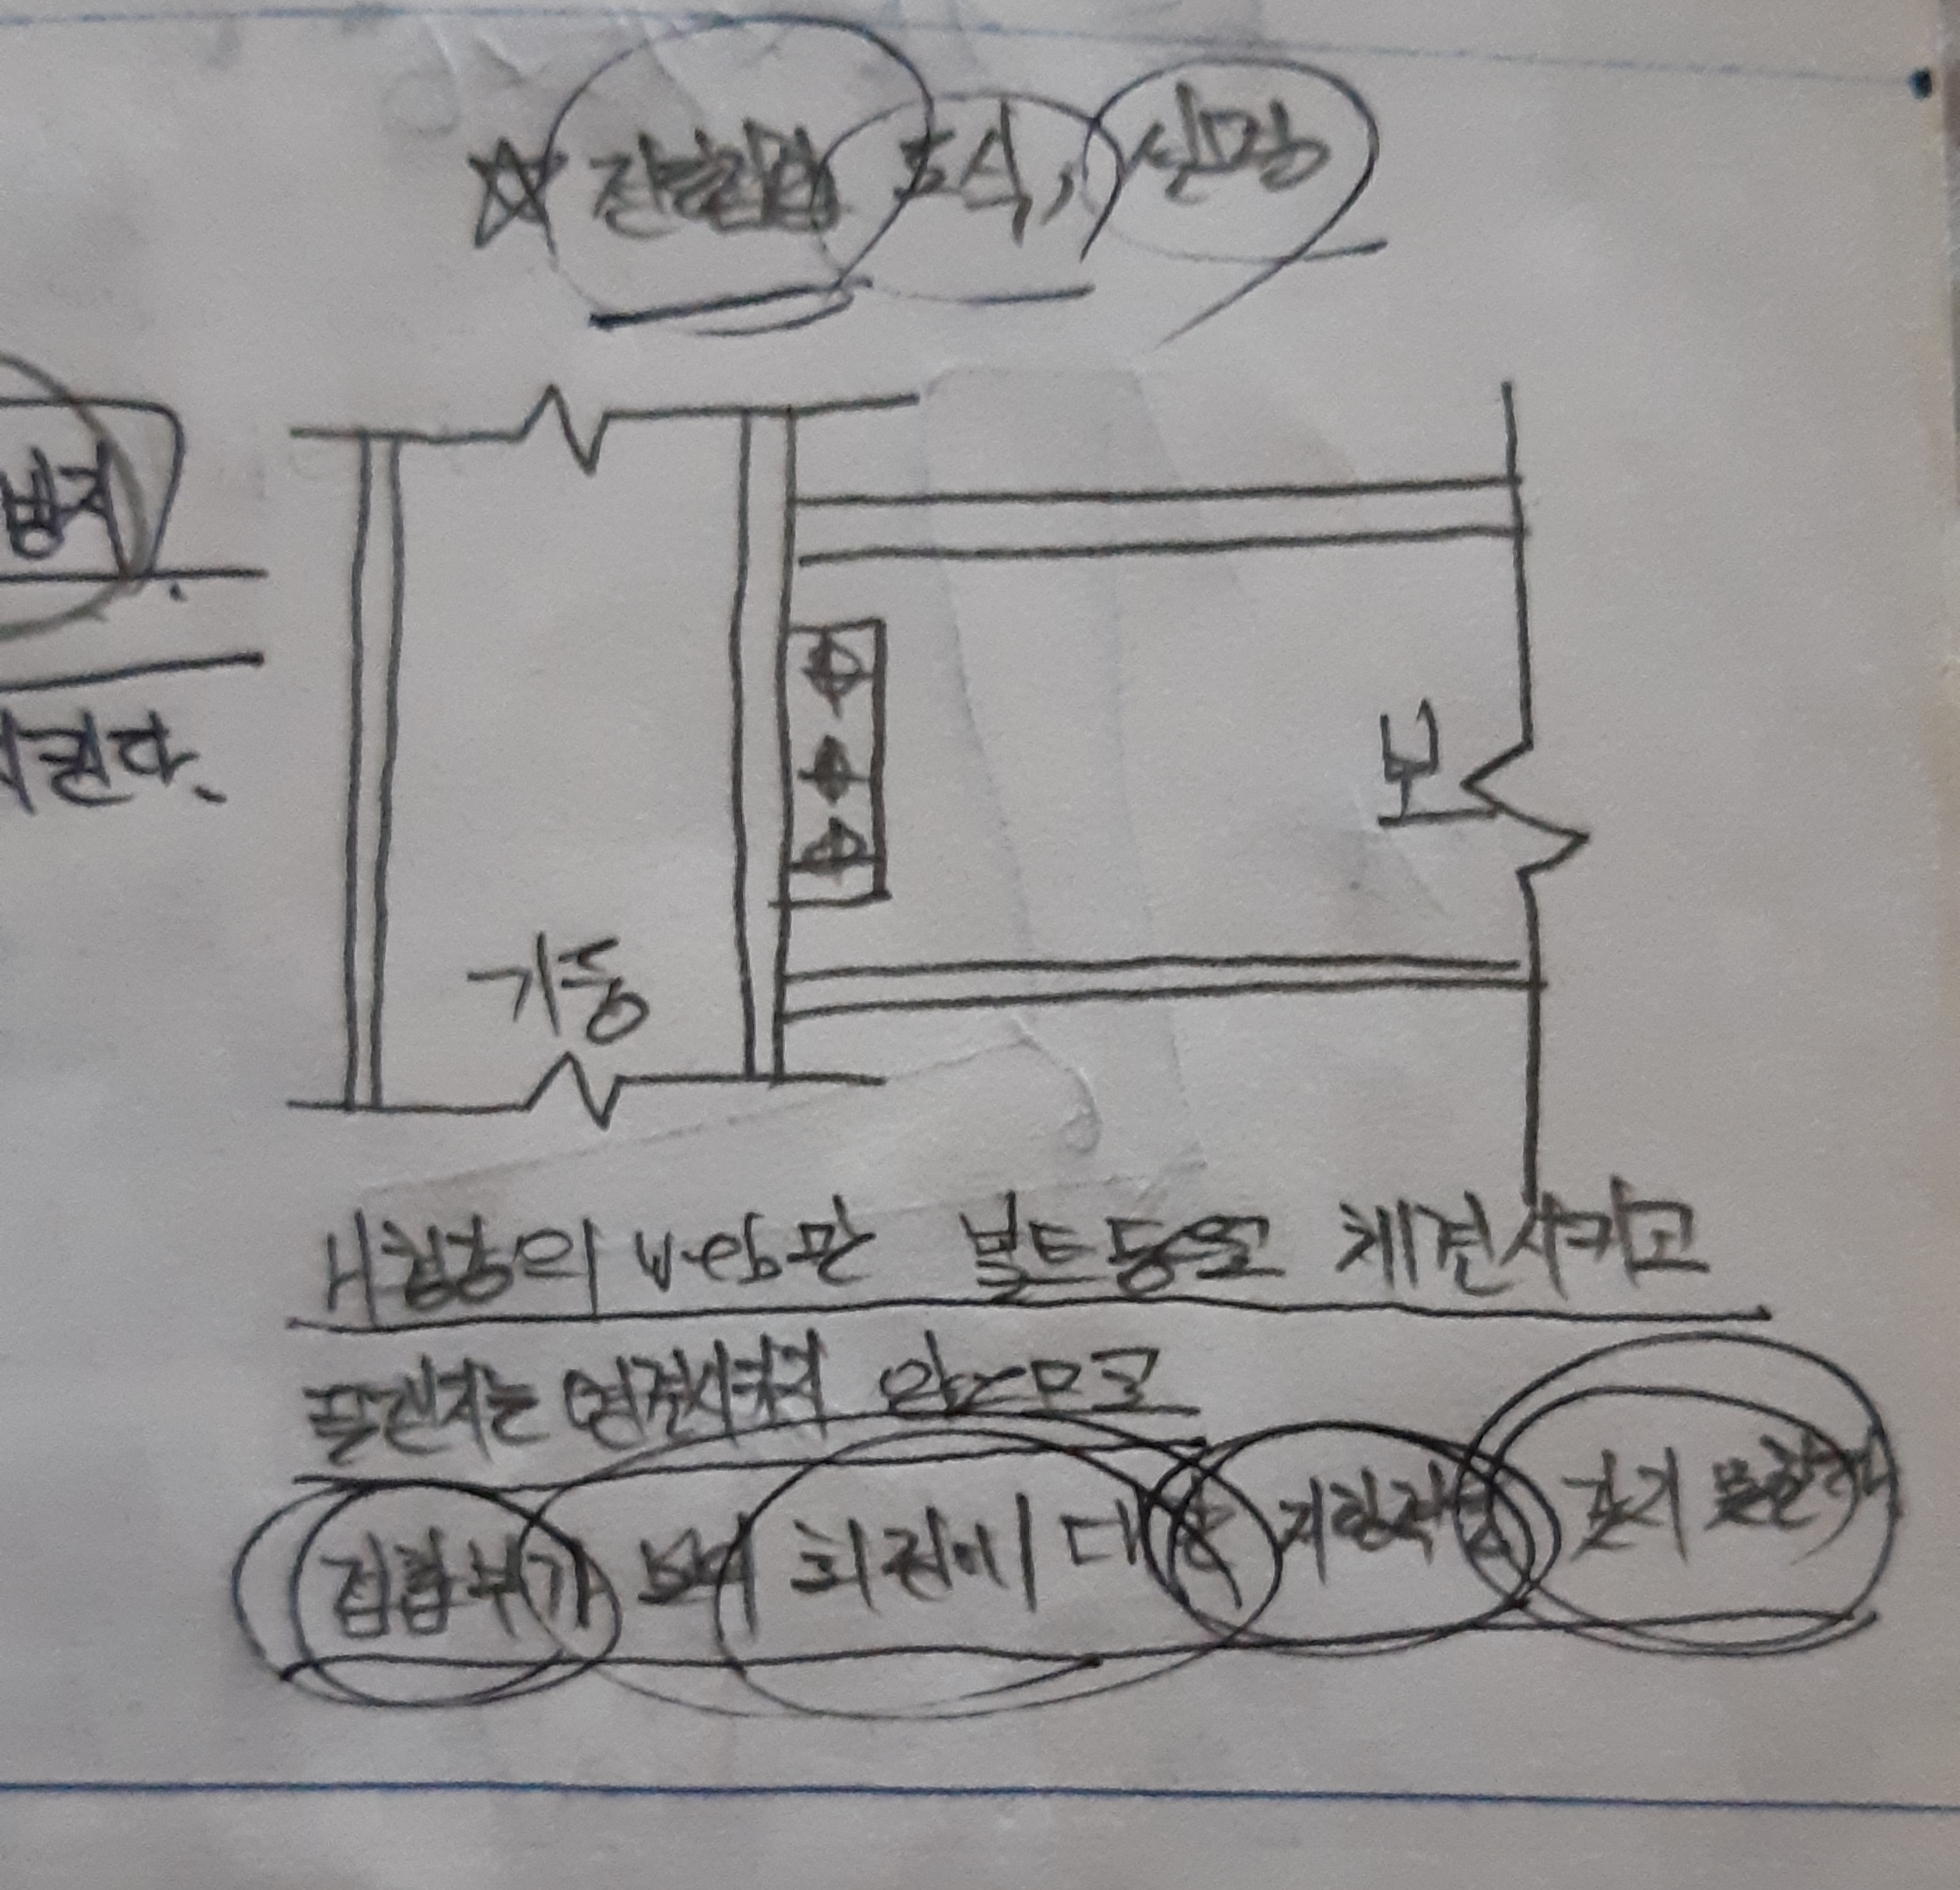 ☆ 전단접합 도식, 설명
방지
시킨다.
보
기둥
H형강의 web만 볼트등으로 체결시키고
플랜지는 연결시키지 않으므로
접합부가 보의 회전에 대한 저항력을 갖지 못한